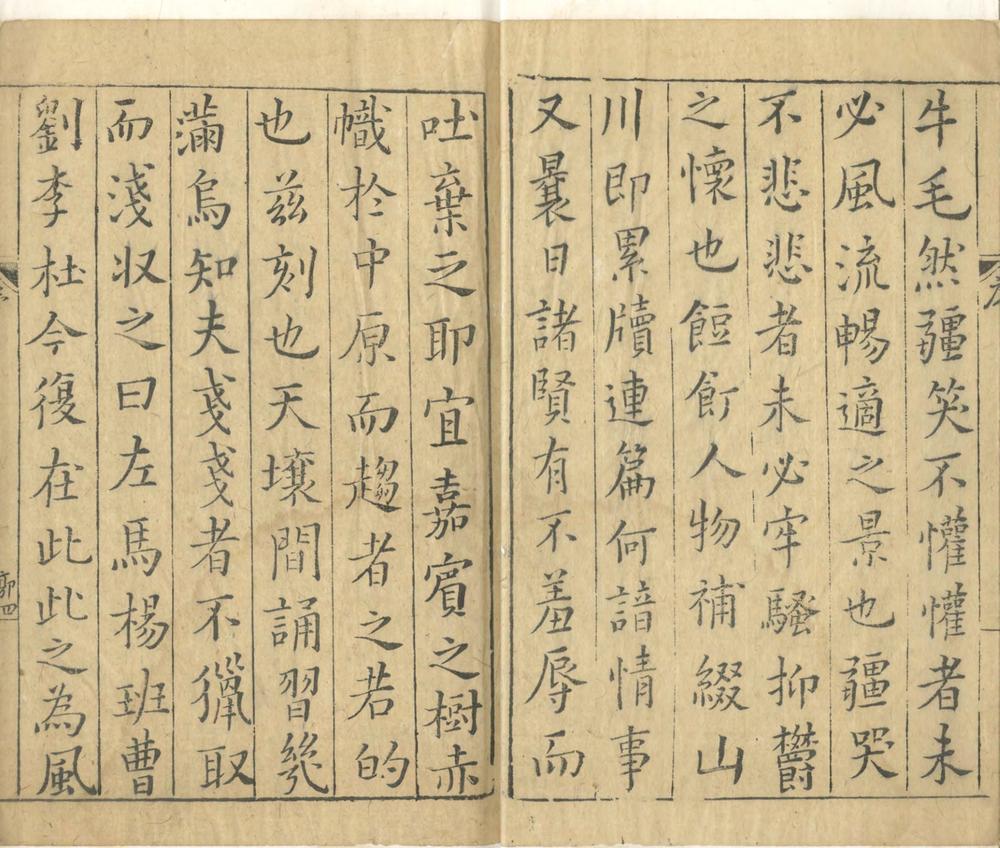 牛毛然彊笑不懽懽者未
必風流暢適之景也彊哭
不悲悲者未必牢騷抑欝
之懷也餖飣人物補綴山
川即累牘連篇何諳情事
又曩日諸賢有不羞辱而
吐棄之耶宜嘉賓之樹赤
幟扵中原而趨者之若的
也兹刻也天壤間誦習㡬
滿烏知夫戔戔者不獵取
而淺収之曰左馬楊班曹
劉李杜今復在此此之為風
序
郭四